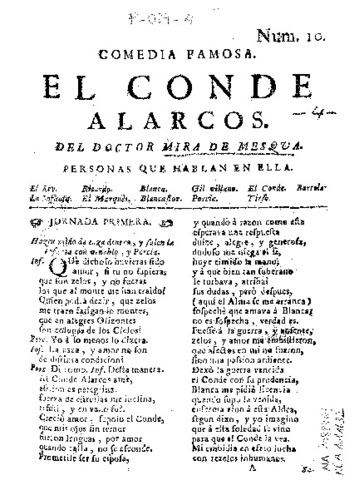 Num. 10.
COMEDIA FAMOSA.
EL CONDE
ALARCOS.
DEL DOCTOR MIRA DE MESQUA.
PERSONAS QUE HABLAN EN ELLA.
El Rey. Ricardo. Blanca. Gil villano. El Conde. Bartola
La Infanta. El Marquès. Blancaflor. Porcia. Tirso.
JORNADA PRIMERA.
Hacen ruido de caza dentro, y salen la
Infanta con venablo, y Porcia.
Inf. QUè dichoso huvieras sido
amor, si tu no supieras
que son zelos, y no fueras
los que al monte me han traido!
Quien podrà decir, que zelos
me traen
que en alegres Orizontes
son de los Cielos?
Porc. Yo à lo menos lo dixera.
Inf. La caza, y amor no son
de distinta condicion?
Porc. Di como. Inf. Desta manera.
Al Conde Alarcos amè,
aficion es peregrina,
fuerza de estrellas me inclina,
resisti, y en vano fue.
Creciò amor, supolo el Conde,
que mis ojos sin temor
fueron lenguas, por amor
quando calla, no se esconde.
Prometile ser su esposa,
y quando à razon como esta
esperava una respuesta
dulce, alegre, y generosa,
dudoso me niega el sí,
huye timido la mano,
y à que bien tan soberano
le turbava, atribuí
sus dudas, pero despues,
(aqui el Alma se me arranca)
sospechè que amava à Blanca,
no es sospecha, verdad es.
Fuese à la guerra, y ausente,
zelos, y amor me embistieron,
que afectos en mi no fueron,
sino una passion ardiente.
Dexò la guerra vencida
el Conde con su prudencia,
Blanca me pidiò licencia
quando supo la venida,
enferma vino à esta Aldea,
segun dixo, y yo imagino
que à esta soledad se vino
para que el Conde la vea.
Mi embidia en efeto lucha
con rezelos inhumanos.
A